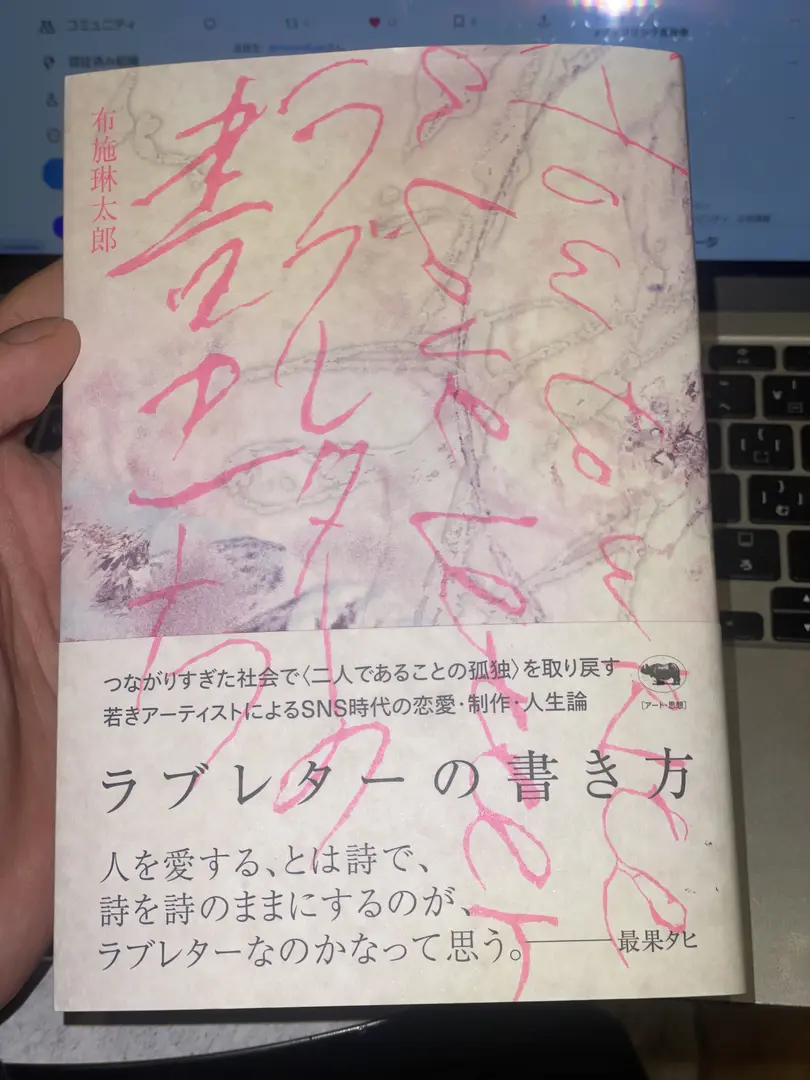 コミュニティ
認証済み組織
布施琳太郎
ラブレターの
書き方
How to write
a love letter
つながりすぎた社会で〈二人であることの孤独〉を取り戻す
若きアーティストによるSNS時代の恋愛・制作・人生論
[アート・思想]
ラブレターの書き方
人を愛する、とは詩で、
詩を詩のままにするのが、
ラブレターなのかなって思う。――最果タヒ